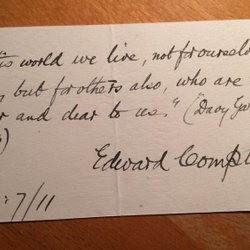 this world we live, not for oursel
, but for others also, who are
r and dear to us." ("Davy Gar
)
Edward Comp
7/11